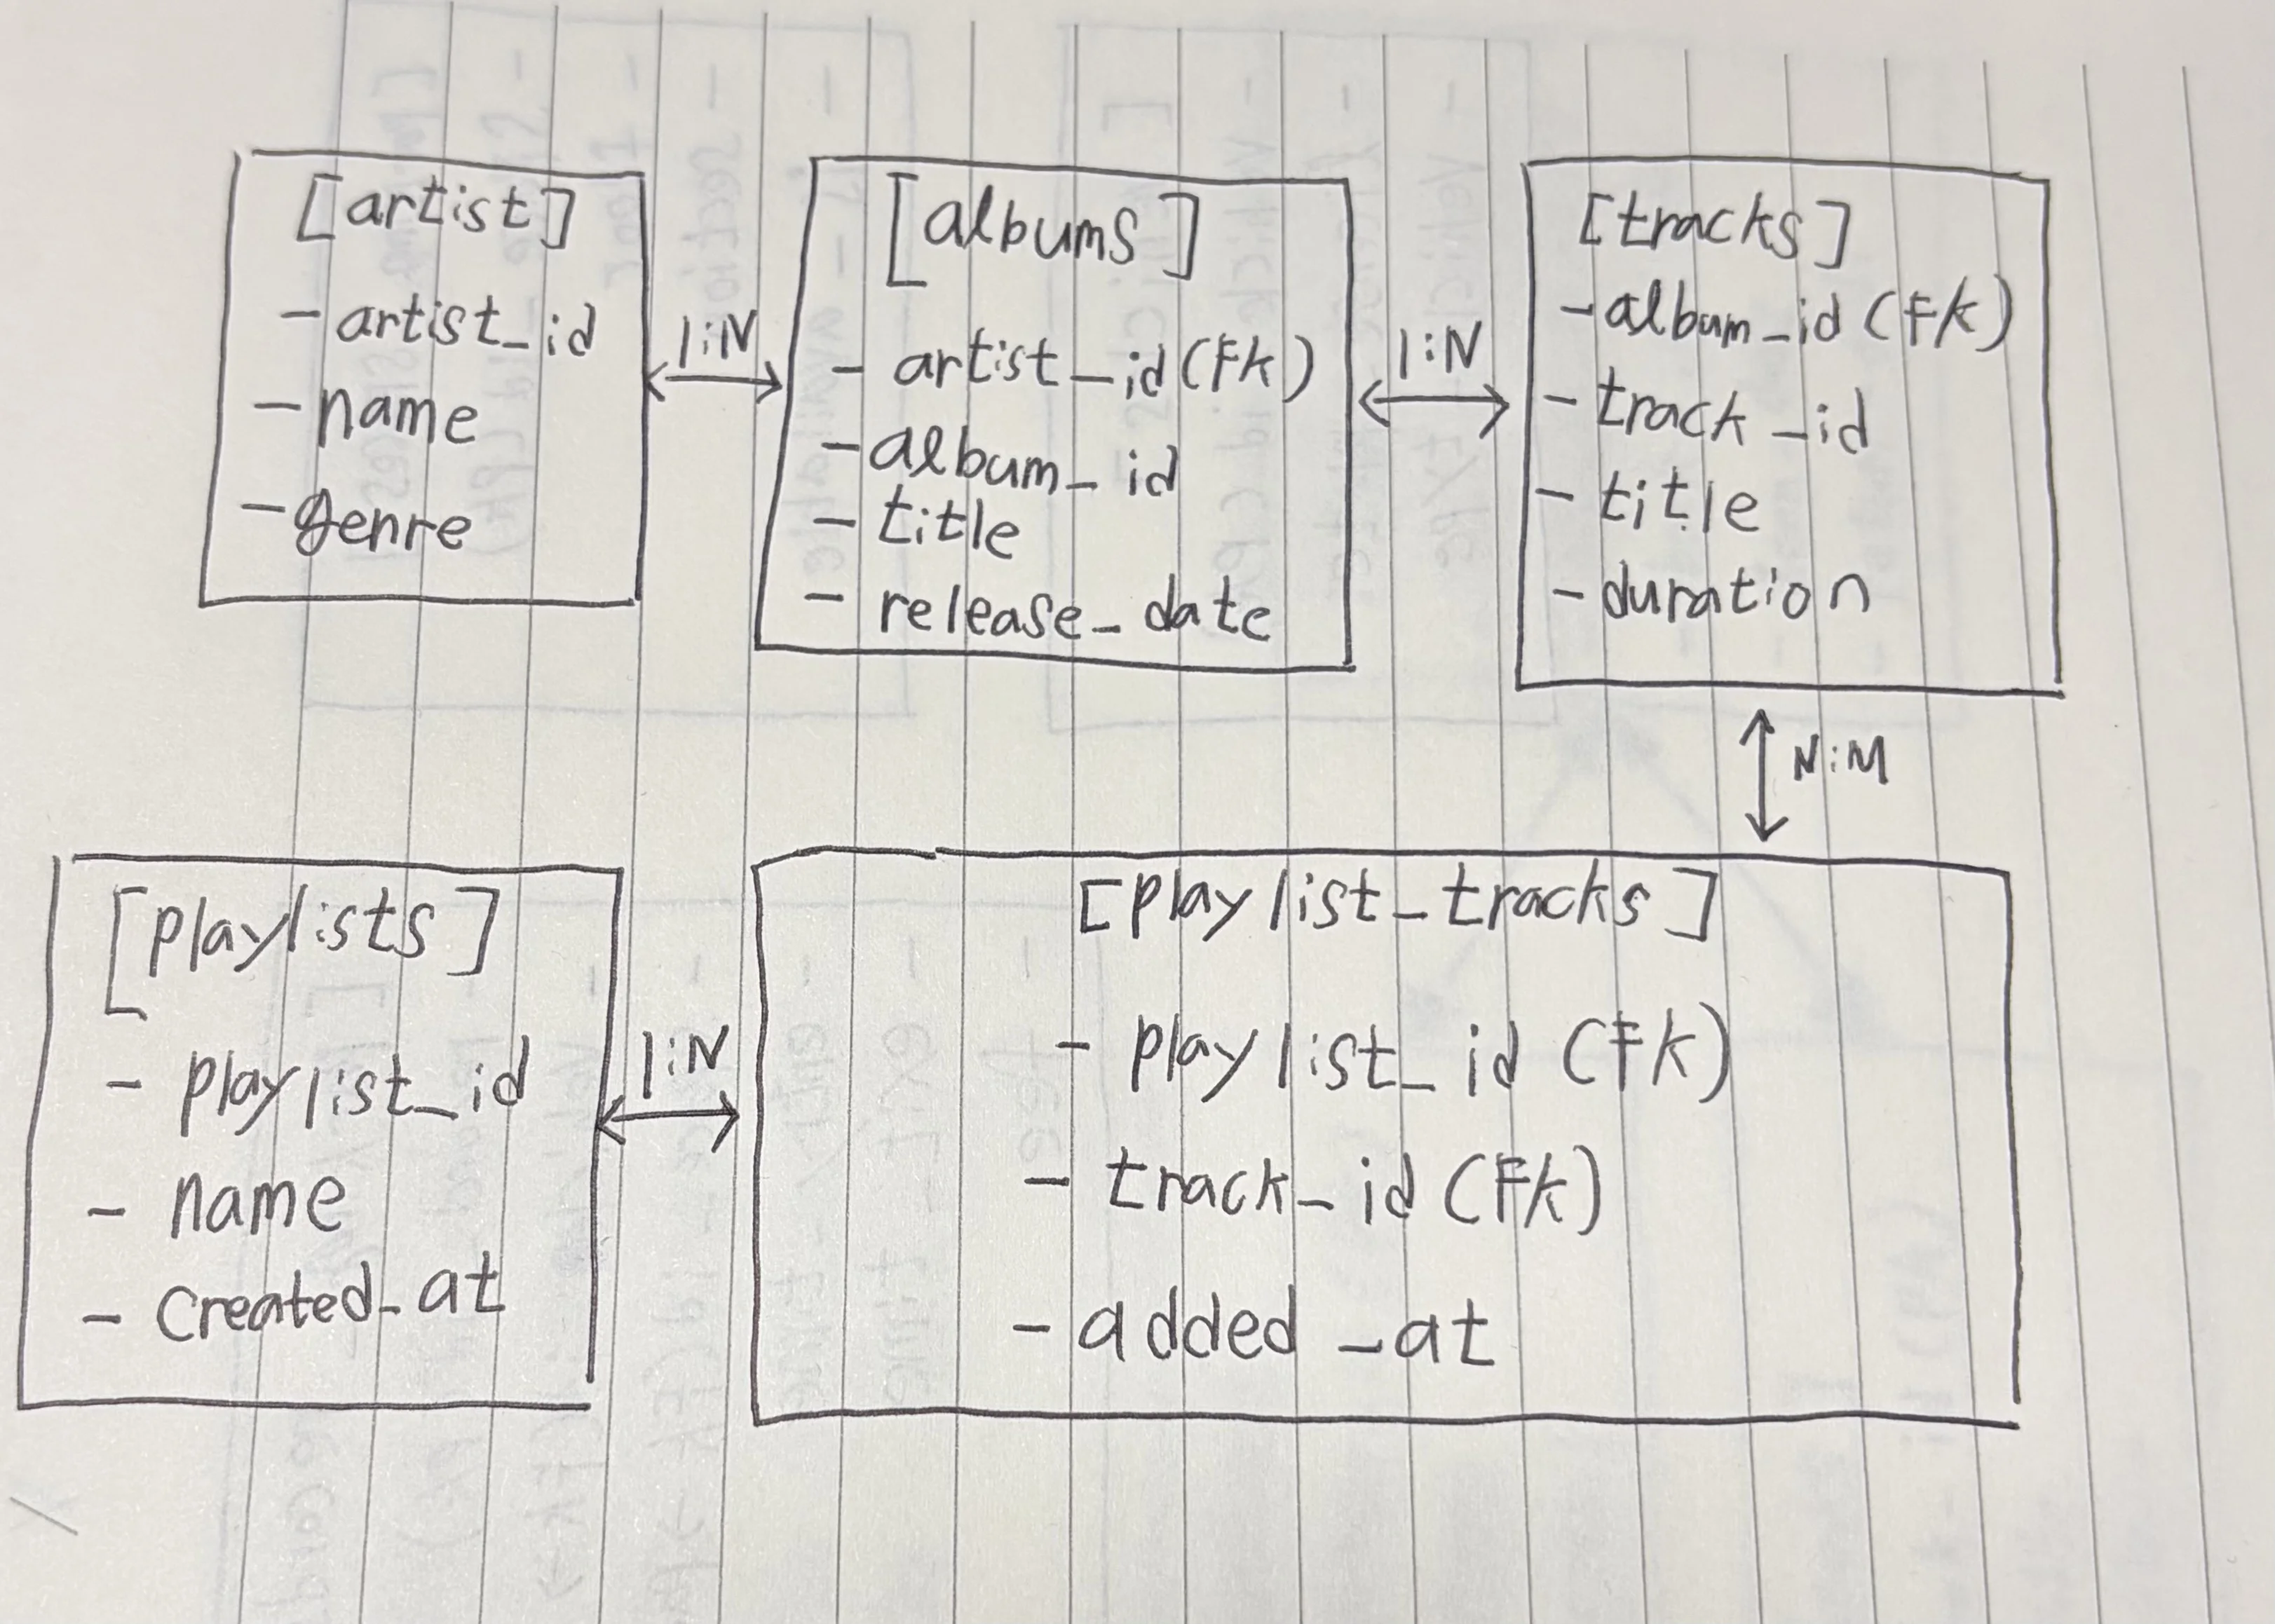 [artist]
- artist_id
- name
- genre
1:N
[albums]
- artist_id (FK)
- album_id
- title
- release_date
1:N
[tracks]
- album_id (FK)
- track_id
- title
- duration
N:M
[playlists]
- playlist_id
- name
- created_at
1:N
[playlist_tracks]
- playlist_id (FK)
- track_id (FK)
- added_at